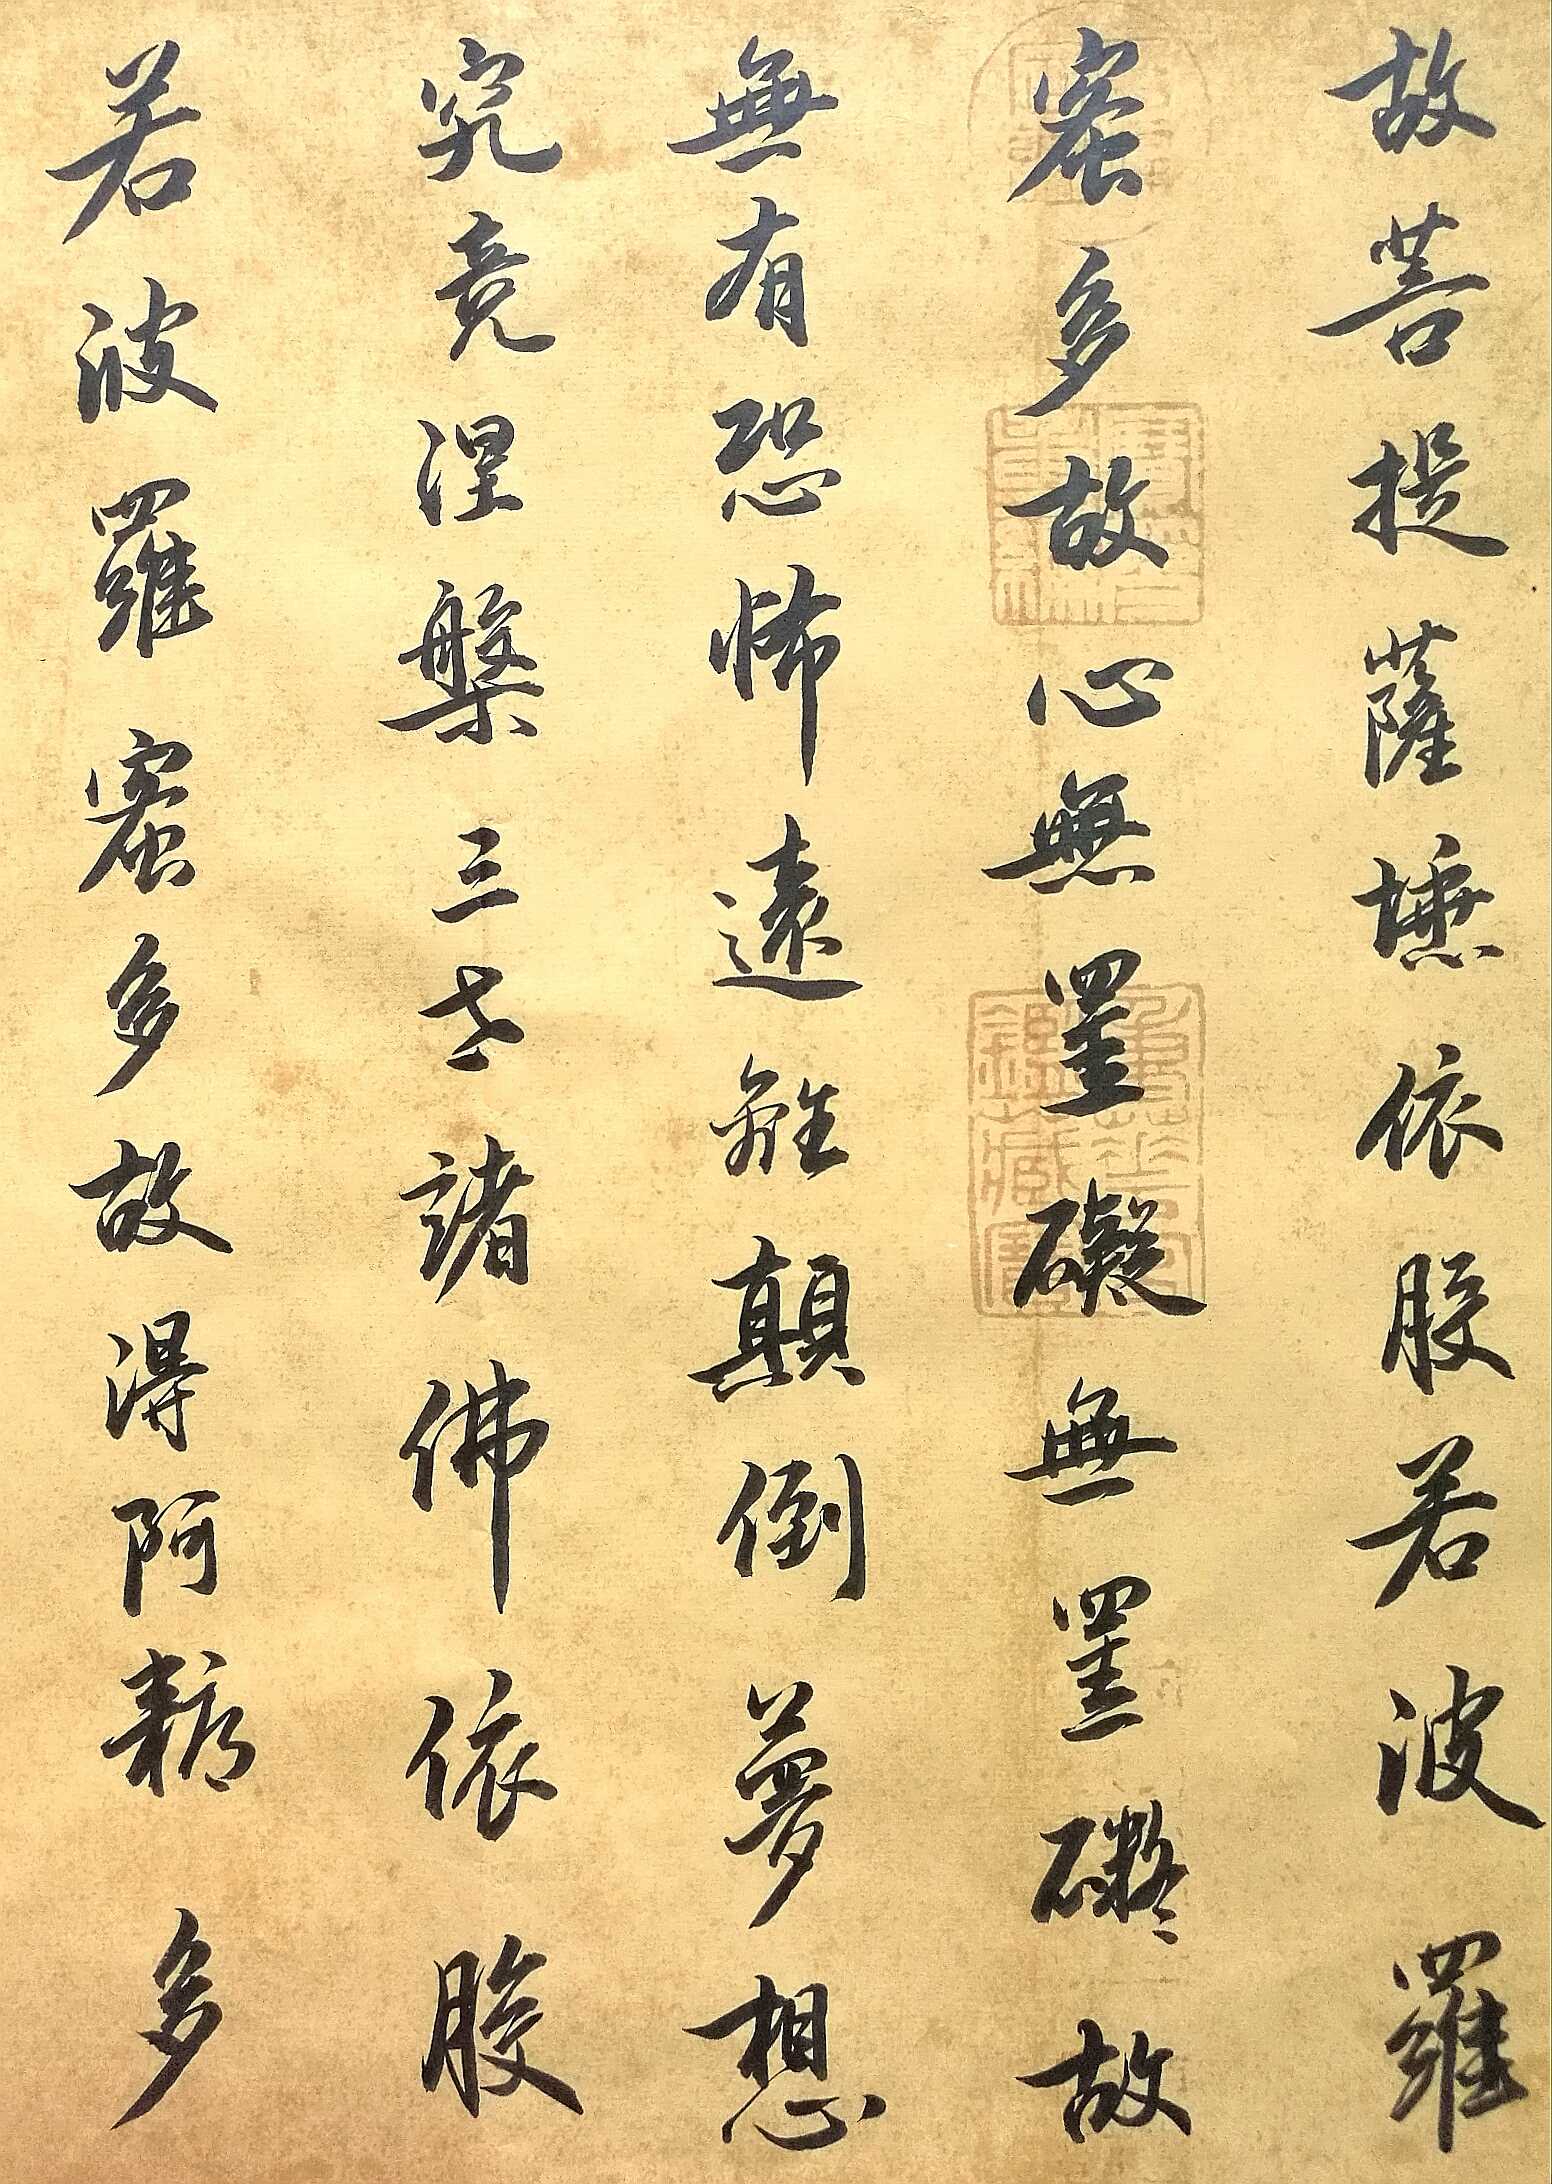 故菩提薩埵依般若波羅
蜜多故心無罣礙無罣礙故
無有恐怖遠離顛倒夢想
究竟涅槃三世諸佛依般
若波羅蜜多故得阿耨多